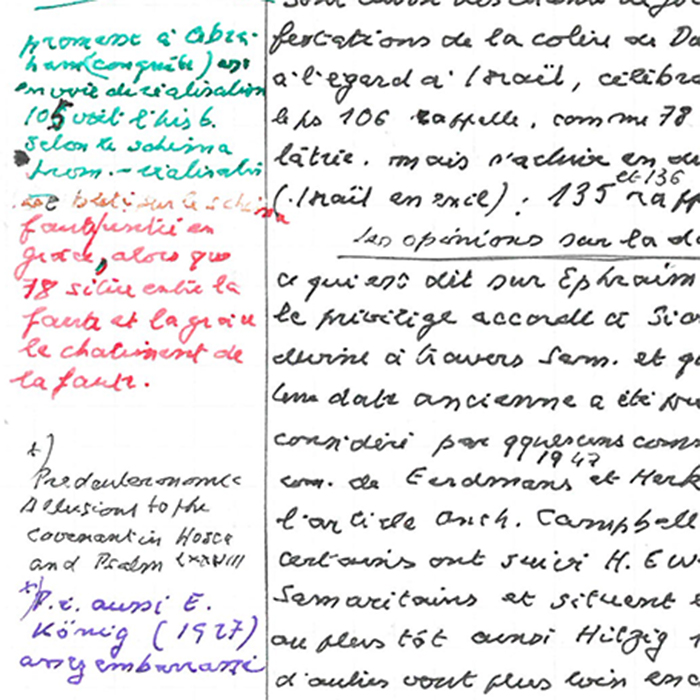 promesse à Abra-
ham (conquête) est
en voie de réalisation
105 voit l'his b.
selon le schéma
prom. - réalisation
est bâti sur le schéma
faute/punitié en
grâce, alors que
78 situe entre la
faute et la grâce
le chatiment de
la faute.
*)
Predeuteronomic
Allusions to the
Covenant in Hosea
and Psalm LXXVIII
*)
P.i. aussi E.
König (1927)
assez embarrassé
festations de la colère de
à l'égard d'Israël, célébra
le ps 106 rappelle, comme 78
lâtrie. mais s'achève en
(.Israël en exil) ; 135 et 136
Les opinions sur la
ce qui est dit sur Ephraim
le privilège accordé à
divine à travers Sam. et
Une date ancienne a été
considéré par qques uns
1947
com. de Eerdmans et
l'article Anth. Campbell
certains ont suivi H.
Samaritains et situent
au plus tôt ainsi Hitzig
d'autres vont plus loin